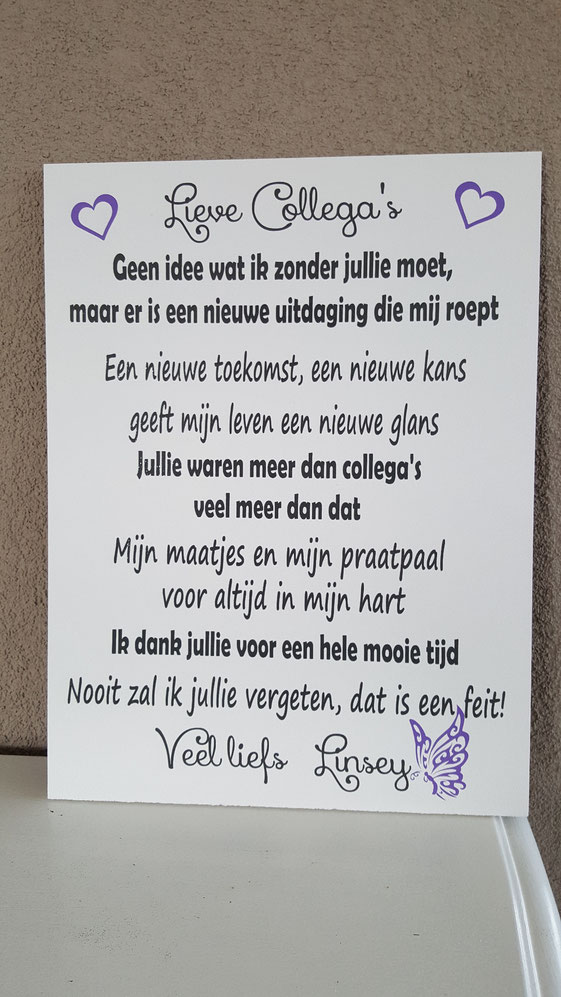 Lieve Collega's
Geen idee wat ik zonder jullie moet,
maar er is een nieuwe uitdaging die mij roept
Een nieuwe toekomst, een nieuwe kans
geeft mijn leven een nieuwe glans
Jullie waren meer dan collega's
veel meer dan dat
Mijn maatjes en mijn praatpaal
voor altijd in mijn hart
Ik dank jullie voor een hele mooie tijd
Nooit zal ik jullie vergeten, dat is een feit!
Veel liefs Linsey